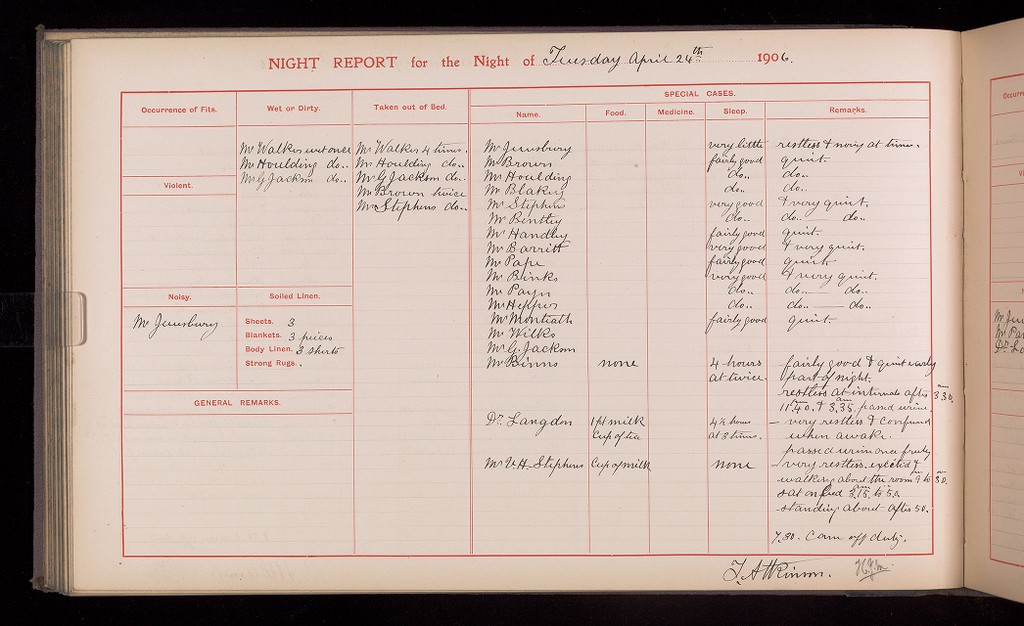 NIGHT REPORT for the Night of Tuesday April 24th 1906.
Occurrence of Fits.
Wet or Dirty.
Taken out of Bed.
SPECIAL CASES.
Name.
Food.
Medicine.
Sleep.
Remarks.
Mr Walker wet once
Mr Houlding do..
Mr G Jackson do..
Mr Walker 4 times.
Mr Houlding do..
Mr G Jackson do..
Mr Brown twice
Mr Stephens do..
Violent.
Noisy.
Mr Jewsbury
Soiled Linen.
Sheets. 3
Blankets. 3 pieces
Body Linen. 3 shirts
Strong Rugs.
GENERAL REMARKS.
Mr Jewsbury very little restless & noisy at times.
Mr Brown fairly good quiet.
Mr Houlding do.. do..
Mr Blakey do.. do..
Mr Stephens very good & very quiet.
Mr Bentley do.. do.. do..
Mr Handley fairly good quiet.
Mr Barritt very good & very quiet.
Mr Pape fairly good quiet.
Mr Binks very good & very quiet.
Mr Payn do.. do.. do..
Mr do.. do.. do..
Mr Monteath fairly good quiet.
Mr Wilks
Mr G. Jackson
Mr Binns none 4 hours fairly good & quiet early
at twice. part of night.
restless at intervals after 3.30.
11.40. & 3.35. passed urine.
Dr Langdon 1 pt milk 4½ hours – very restless & confused
Cup of tea at 3 times. when awake.
passed urine once freely
Mr V.H. Stephens Cup of milk none – very restless. excited &
walking about the room 9 to 3.0.
sat on bed 3.15. to 5.0.
standing about after 5.0.
7.30. Came off duty.
T. Atkinson.